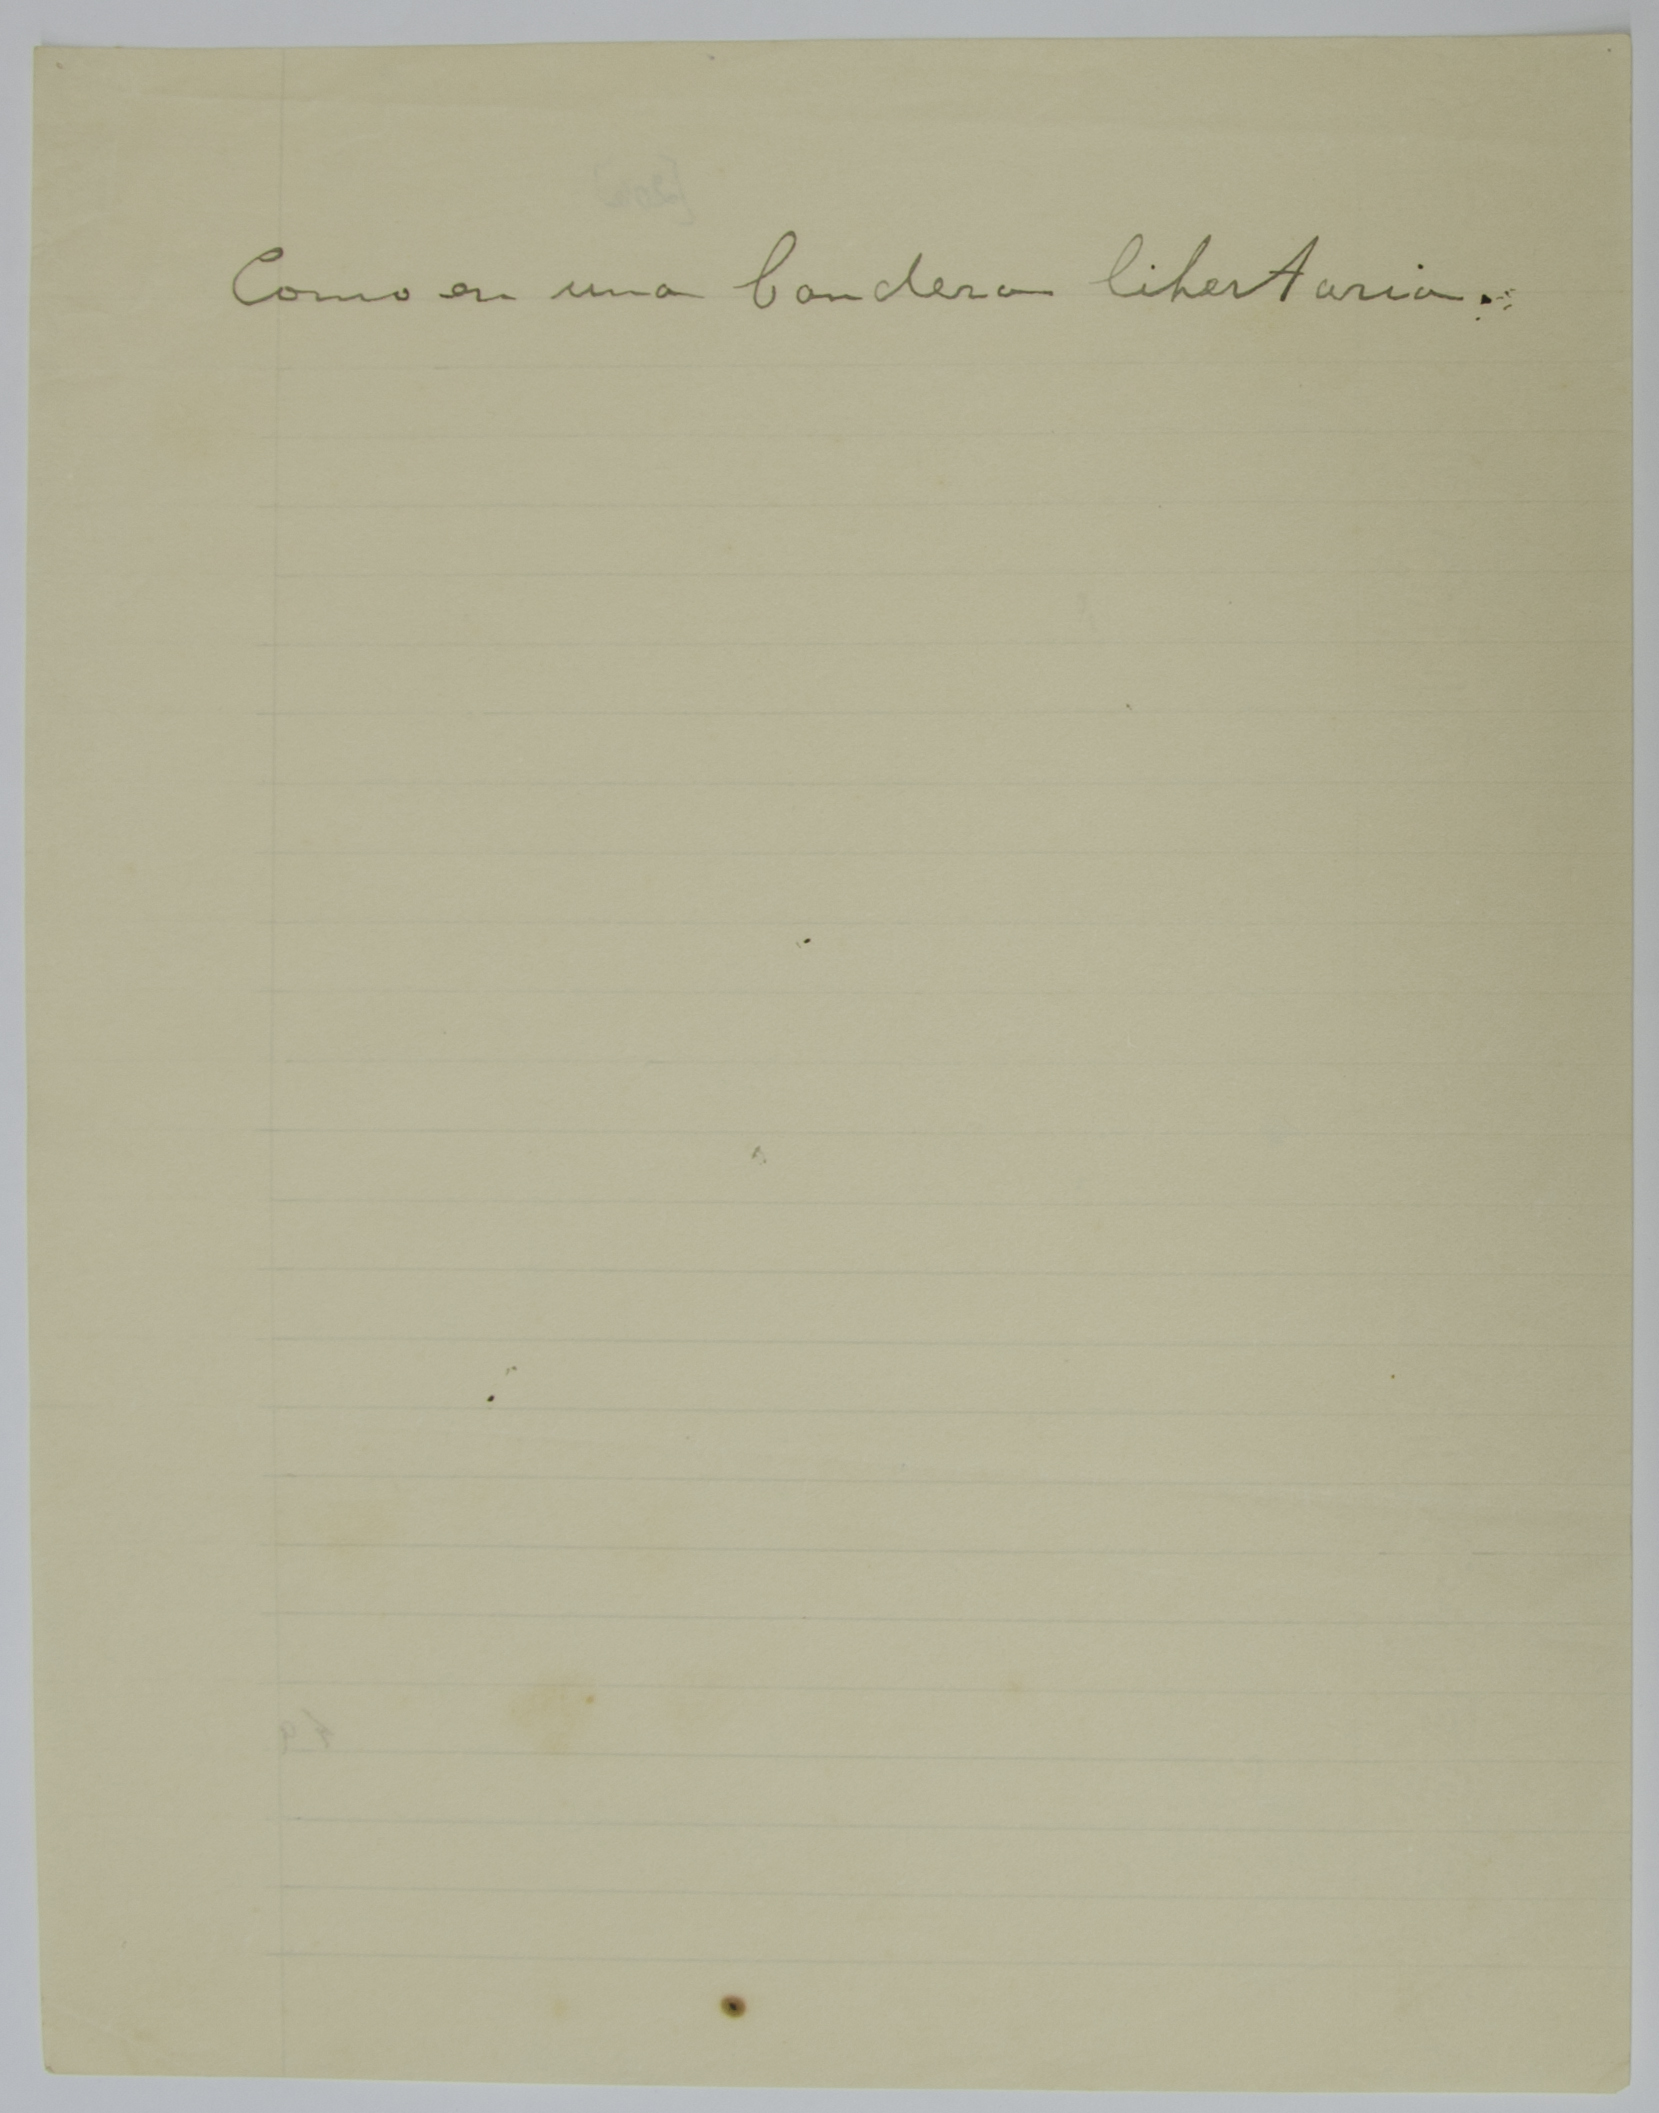 Como en una bandera libertaria.